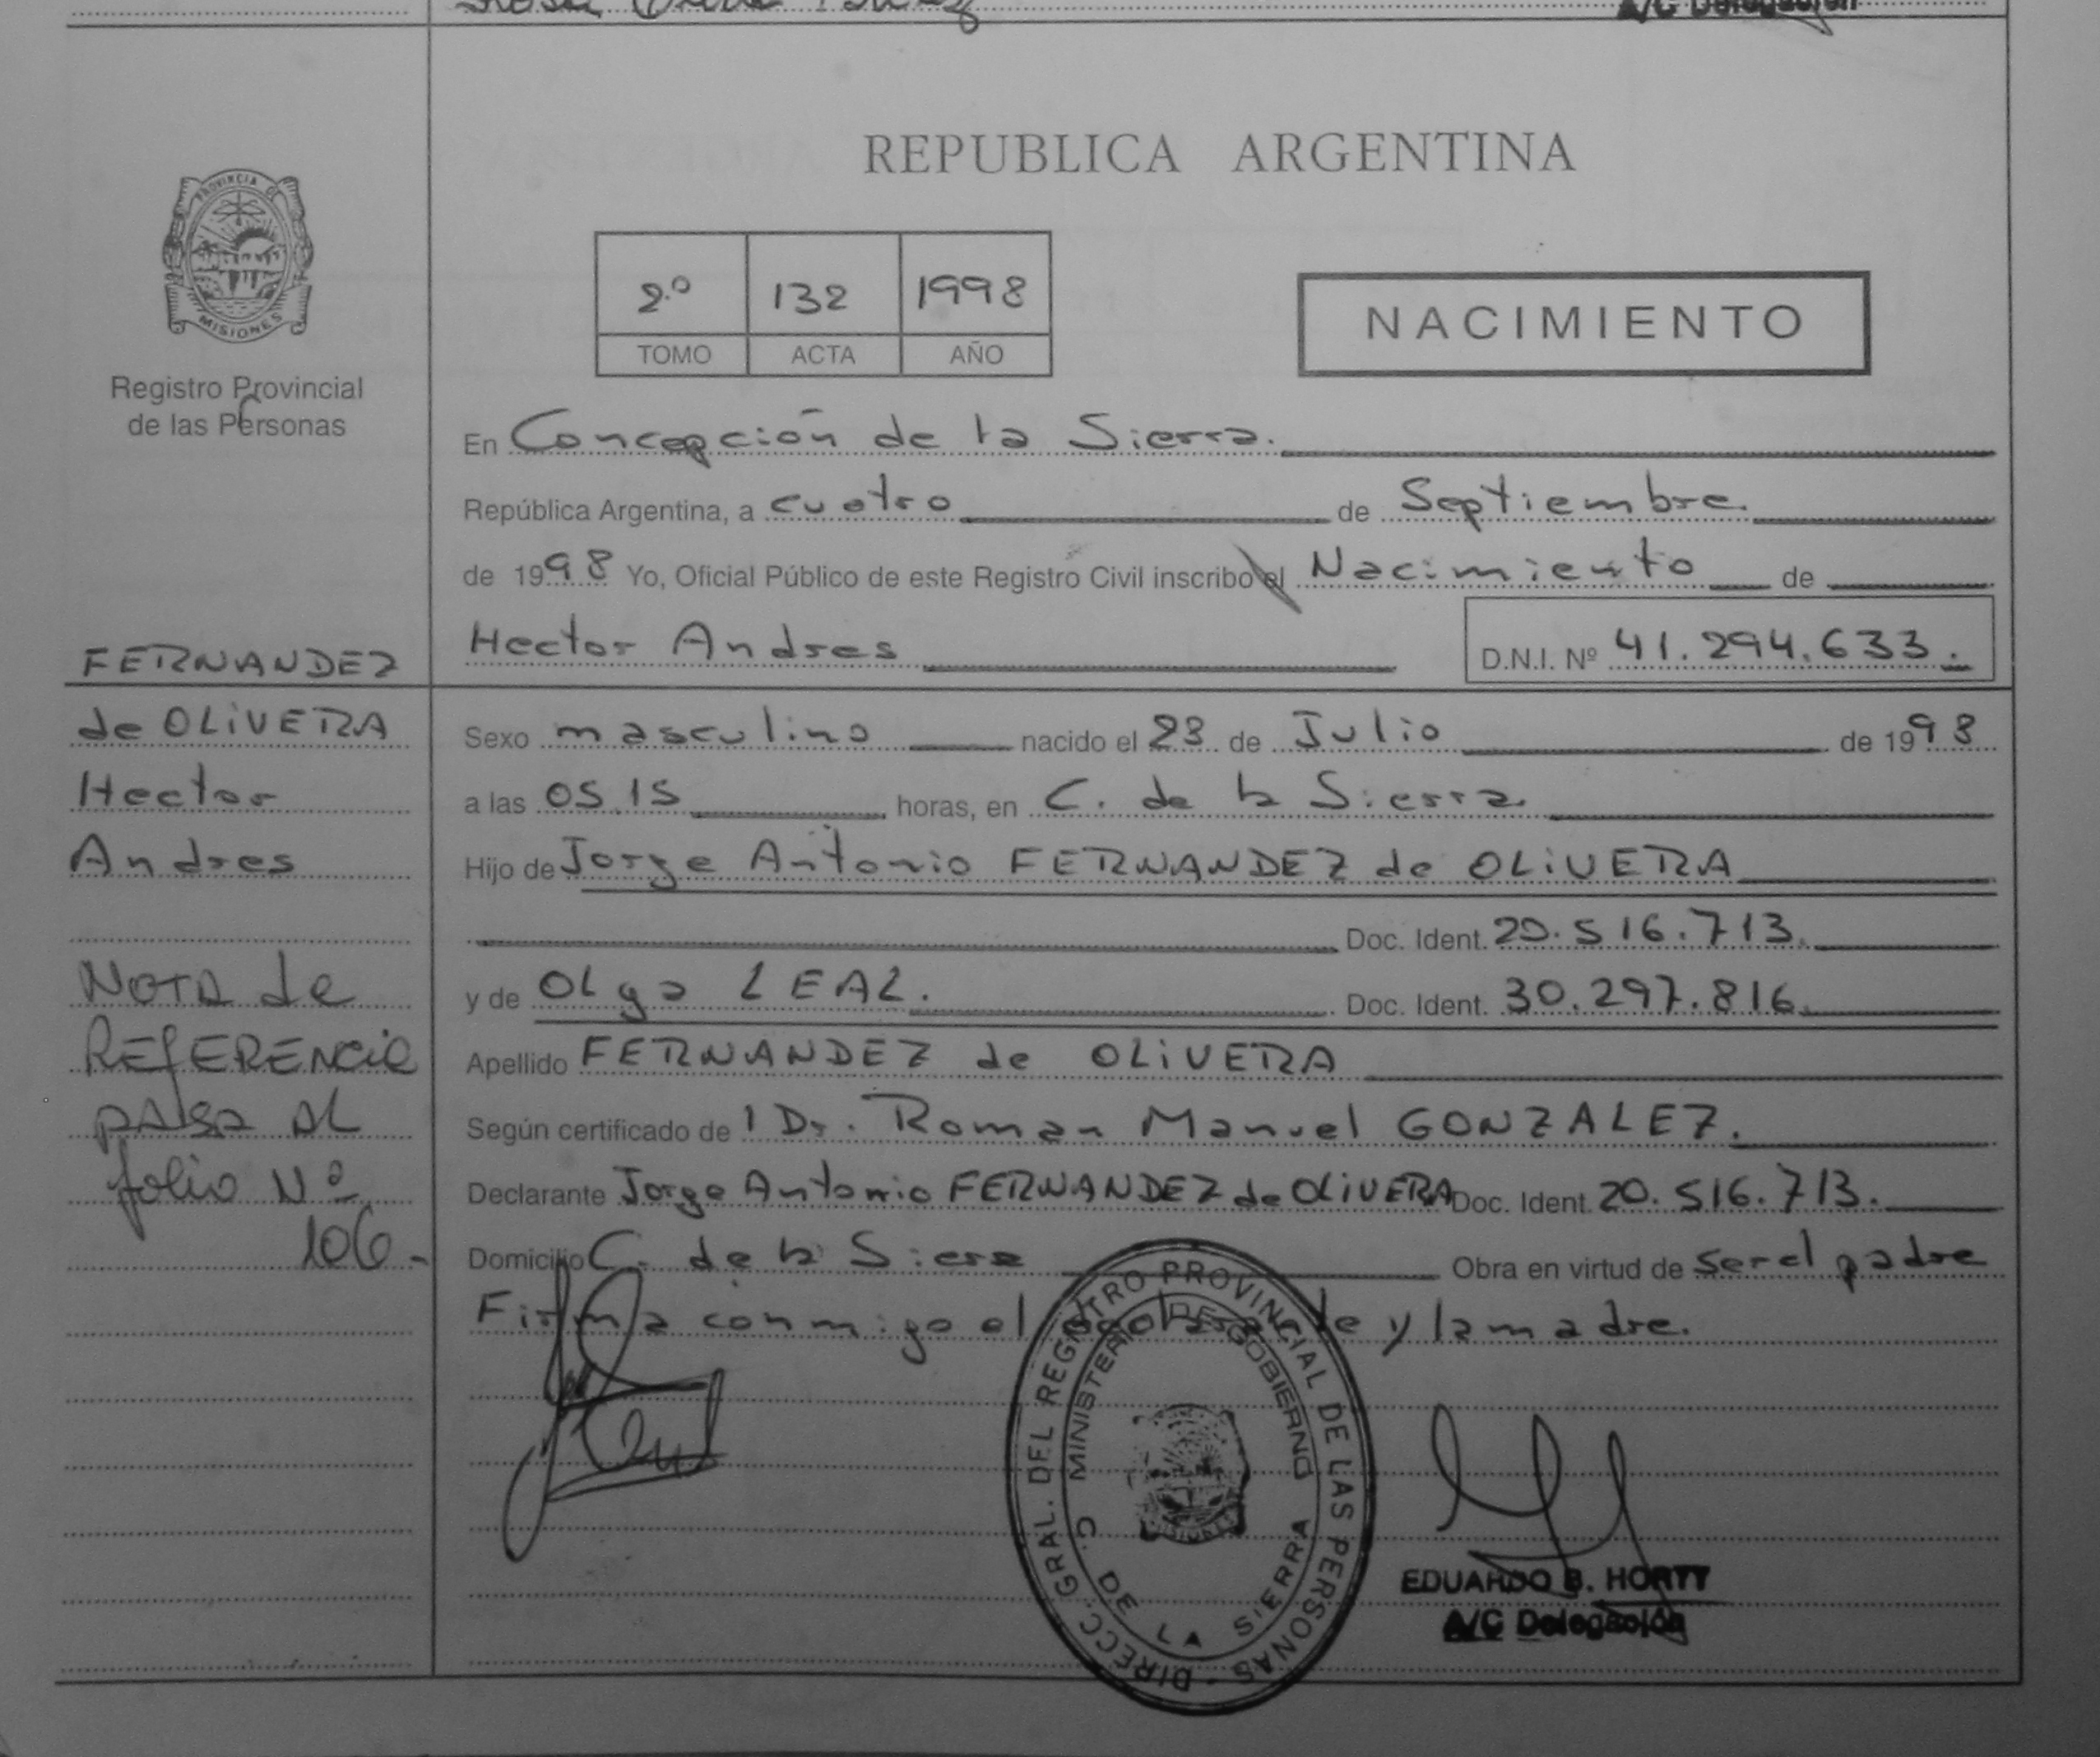 A/C Delegación
REPUBLICA ARGENTINA
PROVINCIA D
MISIONES
Registro Provincial
de las Personas
2º 132 1998
TOMO ACTA AÑO
NACIMIENTO
En Concepción de la Sierra.
República Argentina, a cuatro de Septiembre.
de 1998 Yo, Oficial Público de este Registro Civil inscribo el Nacimiento de
Hector Andres D.N.I. Nº 41.294.633.
FERNANDEZ
de OLIVERA
Hector
Andres
NOTA de
REfERENCia
pASA AL
folio Nº
106-
Sexo masculino nacido el 23 de Julio de 1998
a las 05.15 horas, en C. de la Sierra.
Hijo de Jorge Antonio FERNANDEZ de OLiVERA
Doc. Ident. 20.516.713.
y de OLga LEAL. Doc. Ident. 30.297.816.
Apellido FERNANDEZ de OLiVERA
Según certificado de l Dr. Roman Manuel GONZALEZ.
Declarante Jorge Antonio FERNANDEZ de OLiVERA Doc. Ident. 20.516.713.
Domicilio C. de la Siera Obra en virtud de ser el padre
Firma conmigo el declarante y la madre.
DIRECC. GRAL. DEL REGISTRO PROVINCIAL DE LAS PERSONAS
MINISTERIO DE GOBIERNO
MISIONES
C. DE LA SIERRA
EDUARDO B. HORTT
A/C Delegación